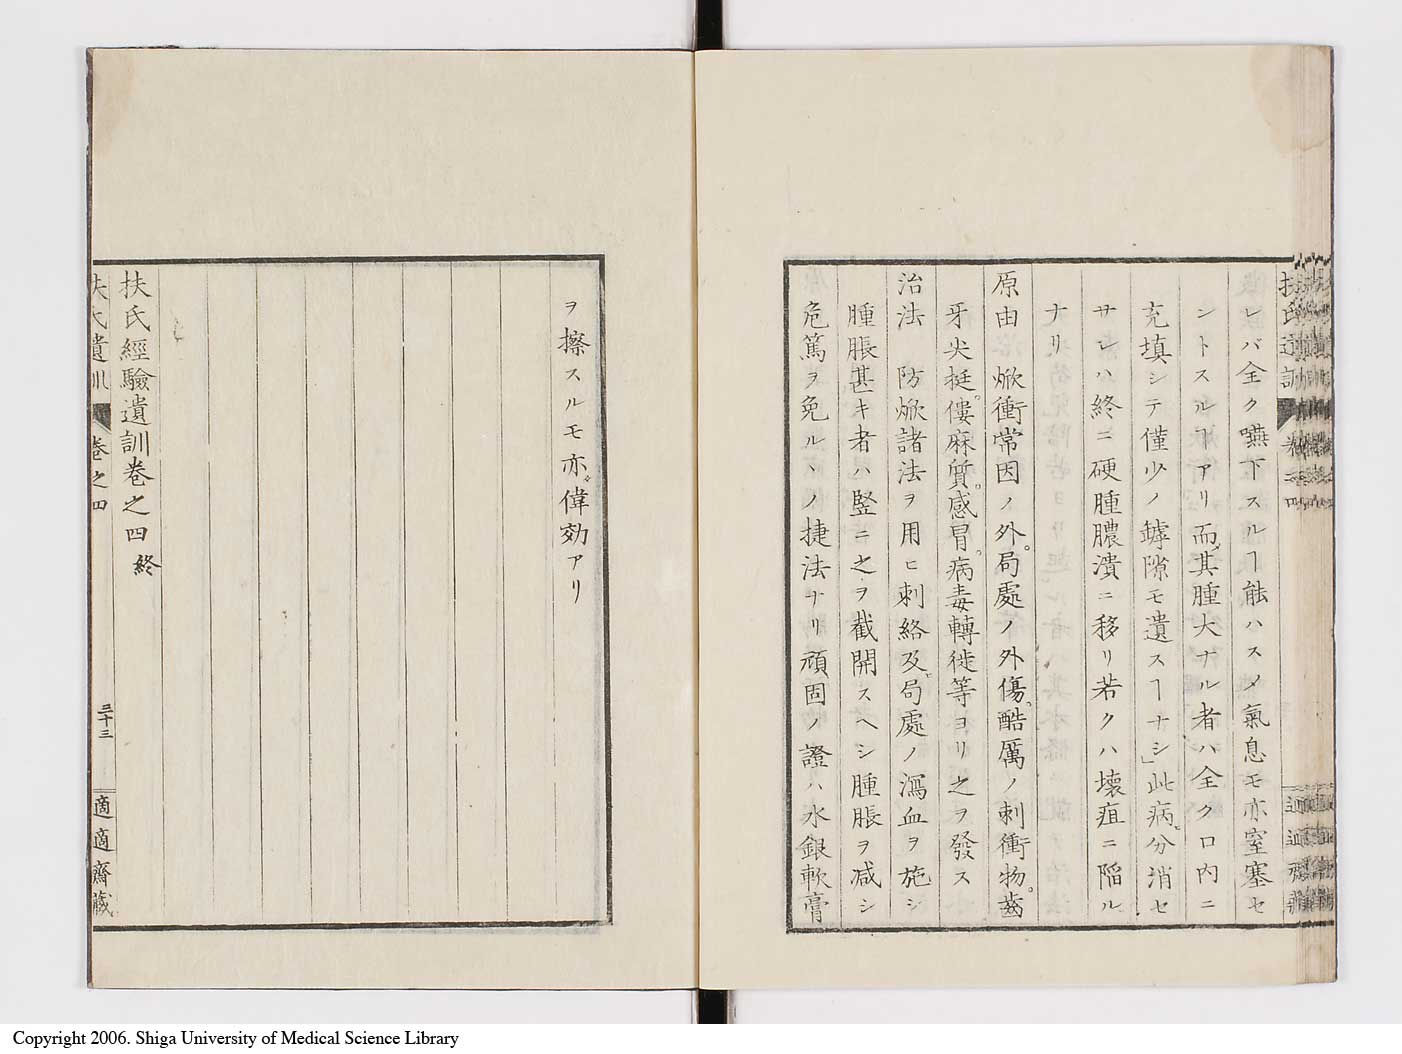 レバ全ク嚥下スルヿ能ハスメ氣息モ亦窒塞セ
ントスルヿアリ而其腫大ナル者ハ全ク口内ニ
充填シテ僅少ノ罅隙モ遺スヿナシ」此病。分消セ
サレハ終ニ硬腫膿潰ニ移リ若クハ壊疽ニ陷ル
ナリ
原由 焮衝常因ノ外。局處ノ外傷。酷厲ノ刺衝物。齒
牙尖挺。僂麻質。感冒。病毒轉徙等ヨリ之ヲ發ス
治法 防焮諸法ヲ用ヒ刺絡及局處ノ瀉血ヲ施シ
腫脹甚キ者ハ竪ニ之ヲ截開スヘシ腫脹ヲ减シ
危篤ヲ免ルヽノ捷法ナリ頑固ノ證ハ水銀軟膏
ヲ擦スルモ亦偉効アリ
扶氏經驗遺訓卷之四終
扶氏遺訓 卷之四 三十三 適適齋藏
Copyright 2006. Shiga University of Medical Science Library